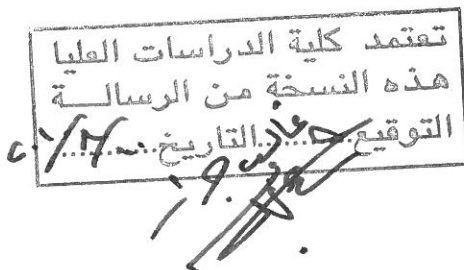 تعتمد كلية الدراسات العليا
هذه النسخة من الرسالــة
التوقيع........التاريخ........